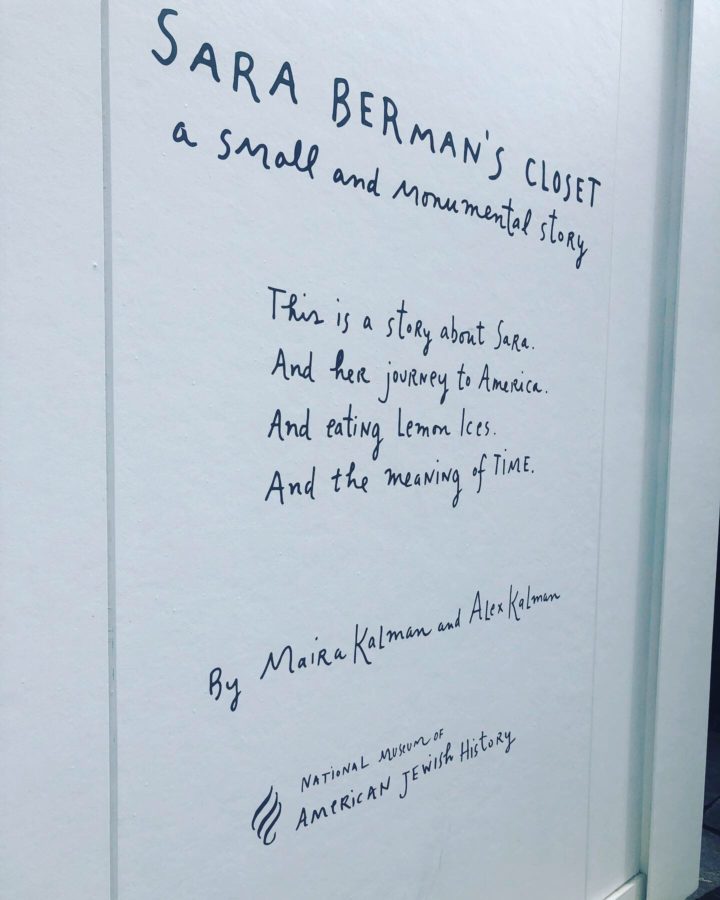 SARA BERMAN'S CLOSET
a small and monumental story
This is a story about Sara.
And her journey to America.
And eating Lemon Ices.
And the meaning of TIME.
By Maira Kalman and Alex Kalman
NATIONAL MUSEUM OF
AMERICAN JEWISH HISTORY